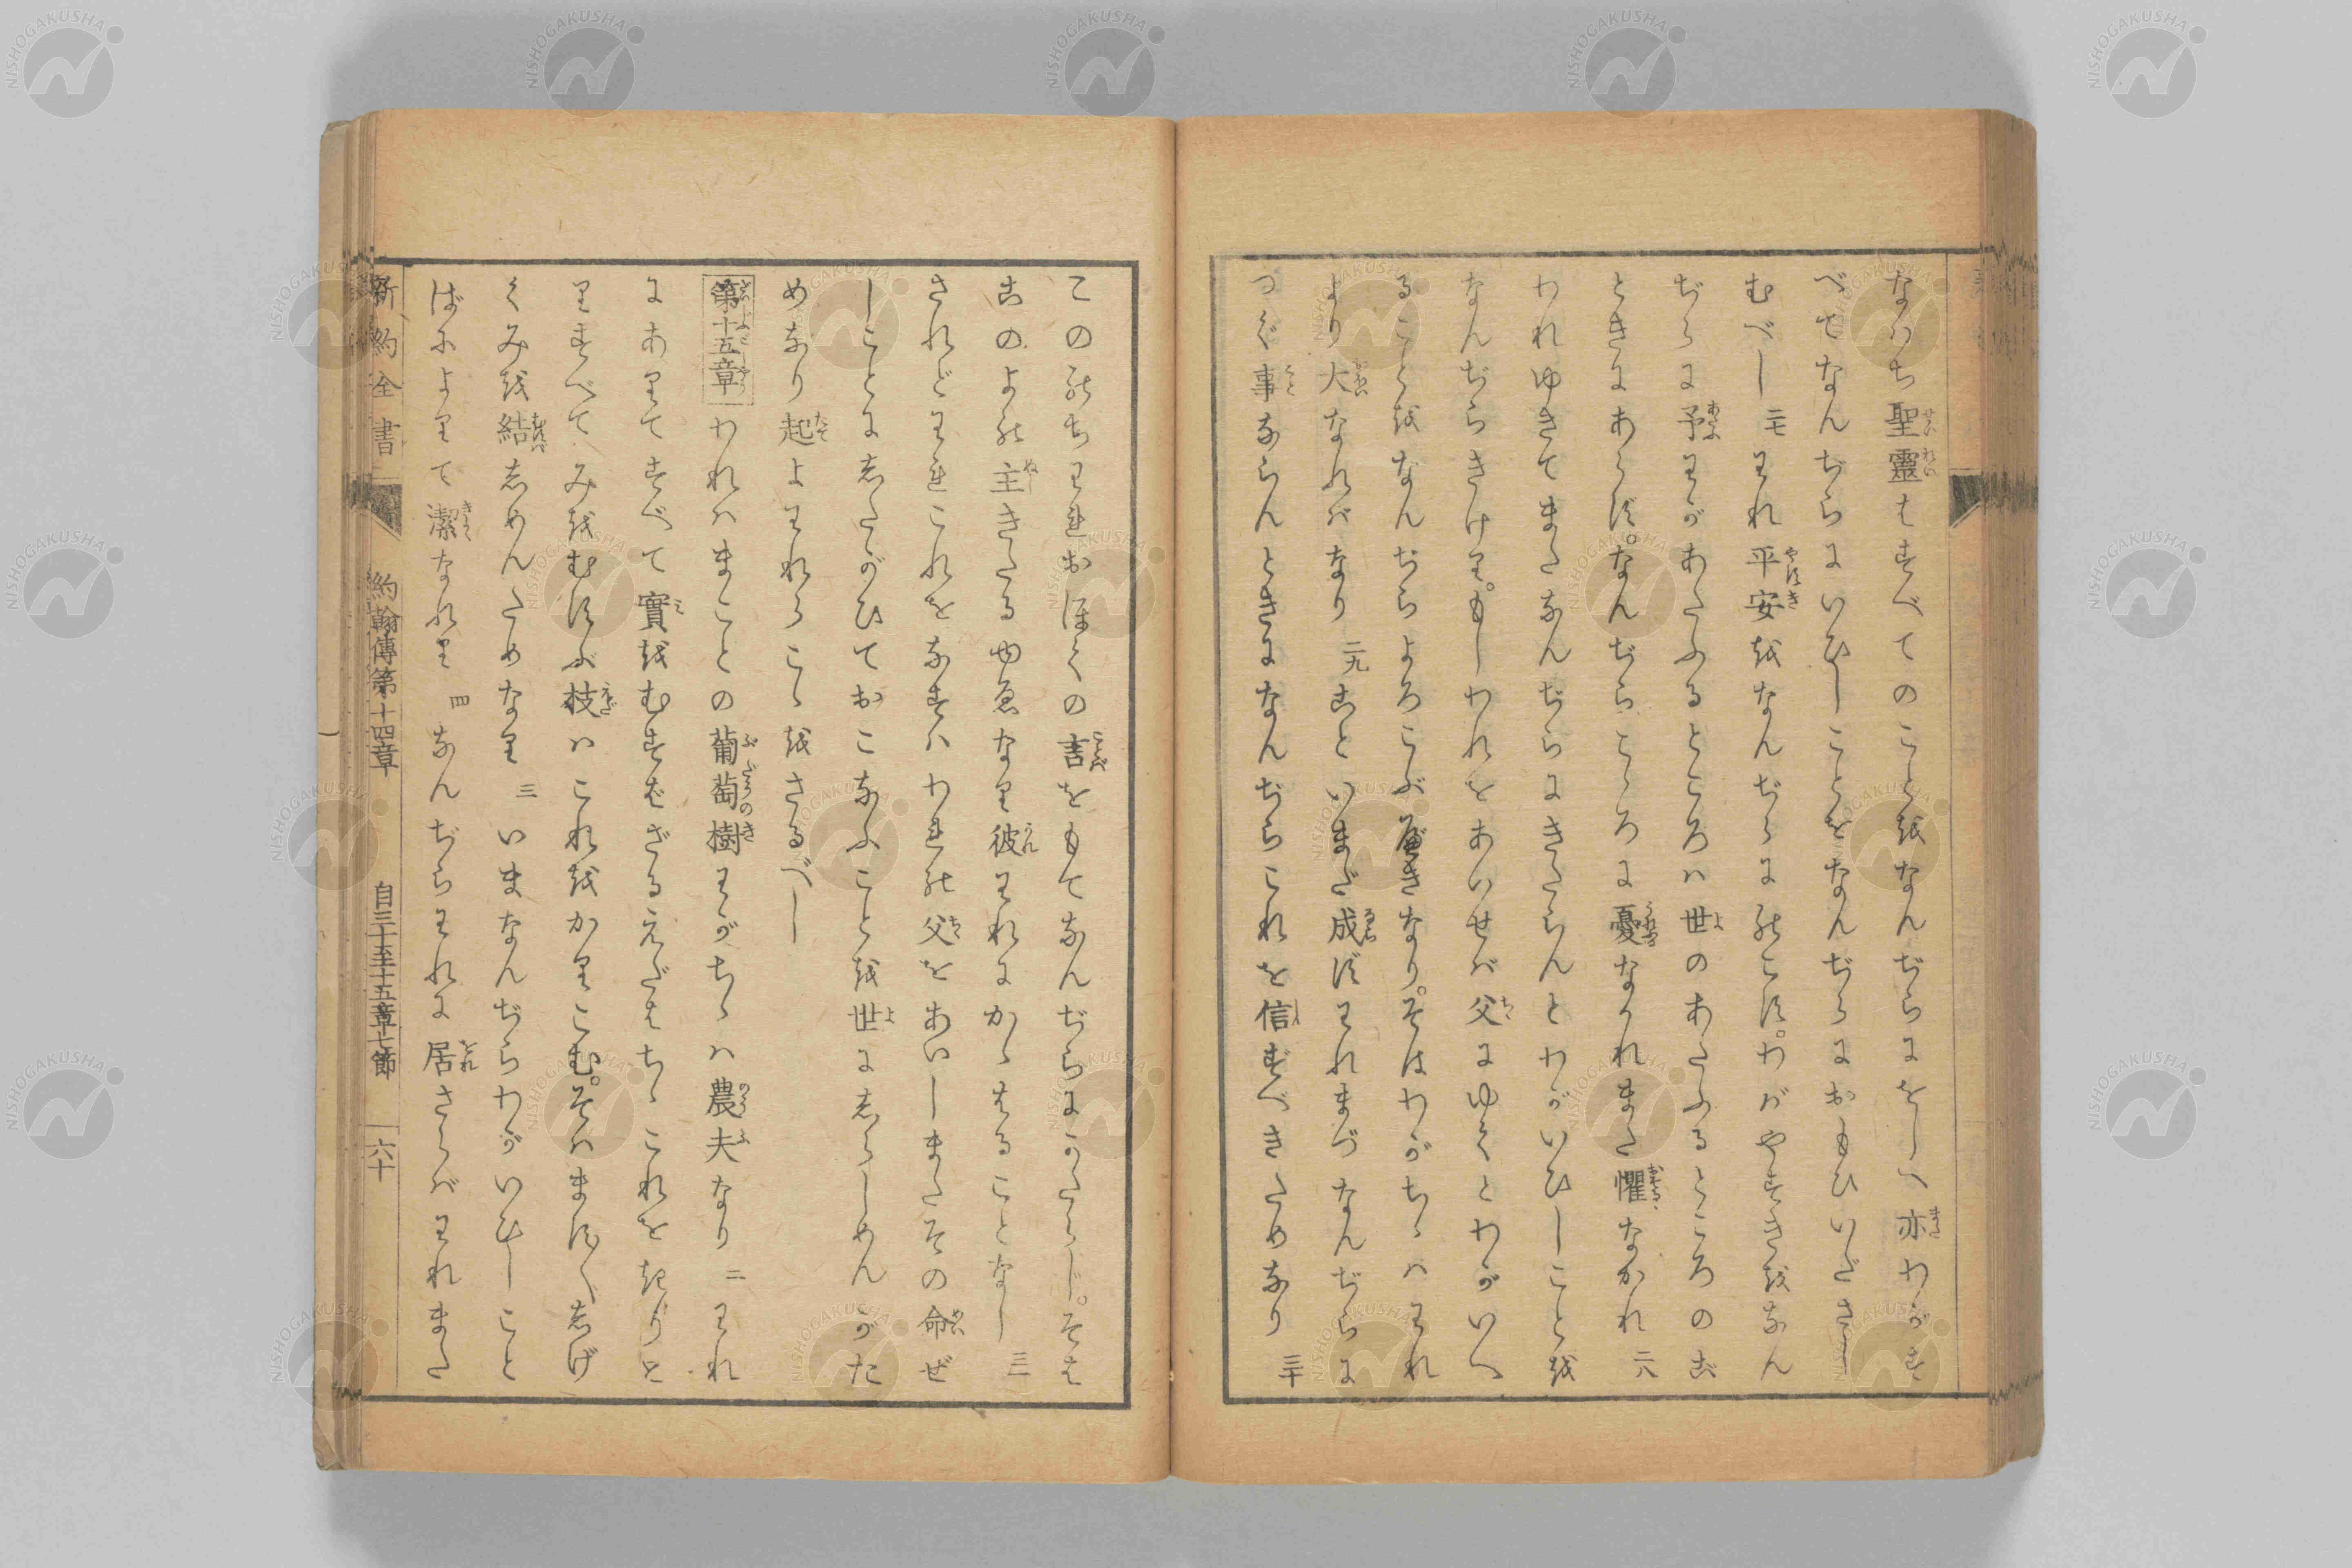 なハち聖靈はすべてのことをなんぢらにをしへ亦わがす
べてなんぢらにいひしことをなんぢらにおもひいださし
むべし 二七 われ平安をなんぢらにのこす。わがやすきをなん
ぢらに予わがあたふるところハ世のあたふるところのご
ときにあらず。なんぢらこゝろに憂なかれまた懼なかれ 二八
われゆきてまたなんぢらにきたらんとわがいひしことを
なんぢらきけり。もしわれをあいせバ父にゆくとわがいへ
ることをなんぢらよろこぶべきなり。そはわがちゝハわれ
より大なれバなり 二九 こといまだ成ずわれまづなんぢらに
つぐ事ならんときになんぢらこれを信ずべきためなり 三十
このゝちわれおほくの言をもてなんぢらにかたらじ。そは
このよの主きたるゆゑなり彼われにかゝはることなし 三一
されどわれこれをなすハわれの父をあいしまたその命ぜ
しことにしたがひておこなふことを世にしらしめんがた
めなり起よわれらこゝをさるべし
第十五章 われハまことの葡萄樹わがちゝハ農夫なり 二 われ
にありてすべて實をむすばざるえだはちゝこれをきりと
りすべてみをむすぶ枝ハこれをかりこむ。そハますますしげ
くみを結しめんためなり 三 いまなんぢらわがいひしこと
ばによりて潔なれり 四 なんぢらわれに居さらバわれまた
新約全書 約翰傳第十四章 自三十至十五章七節 六十
NISHOGAKUSHA